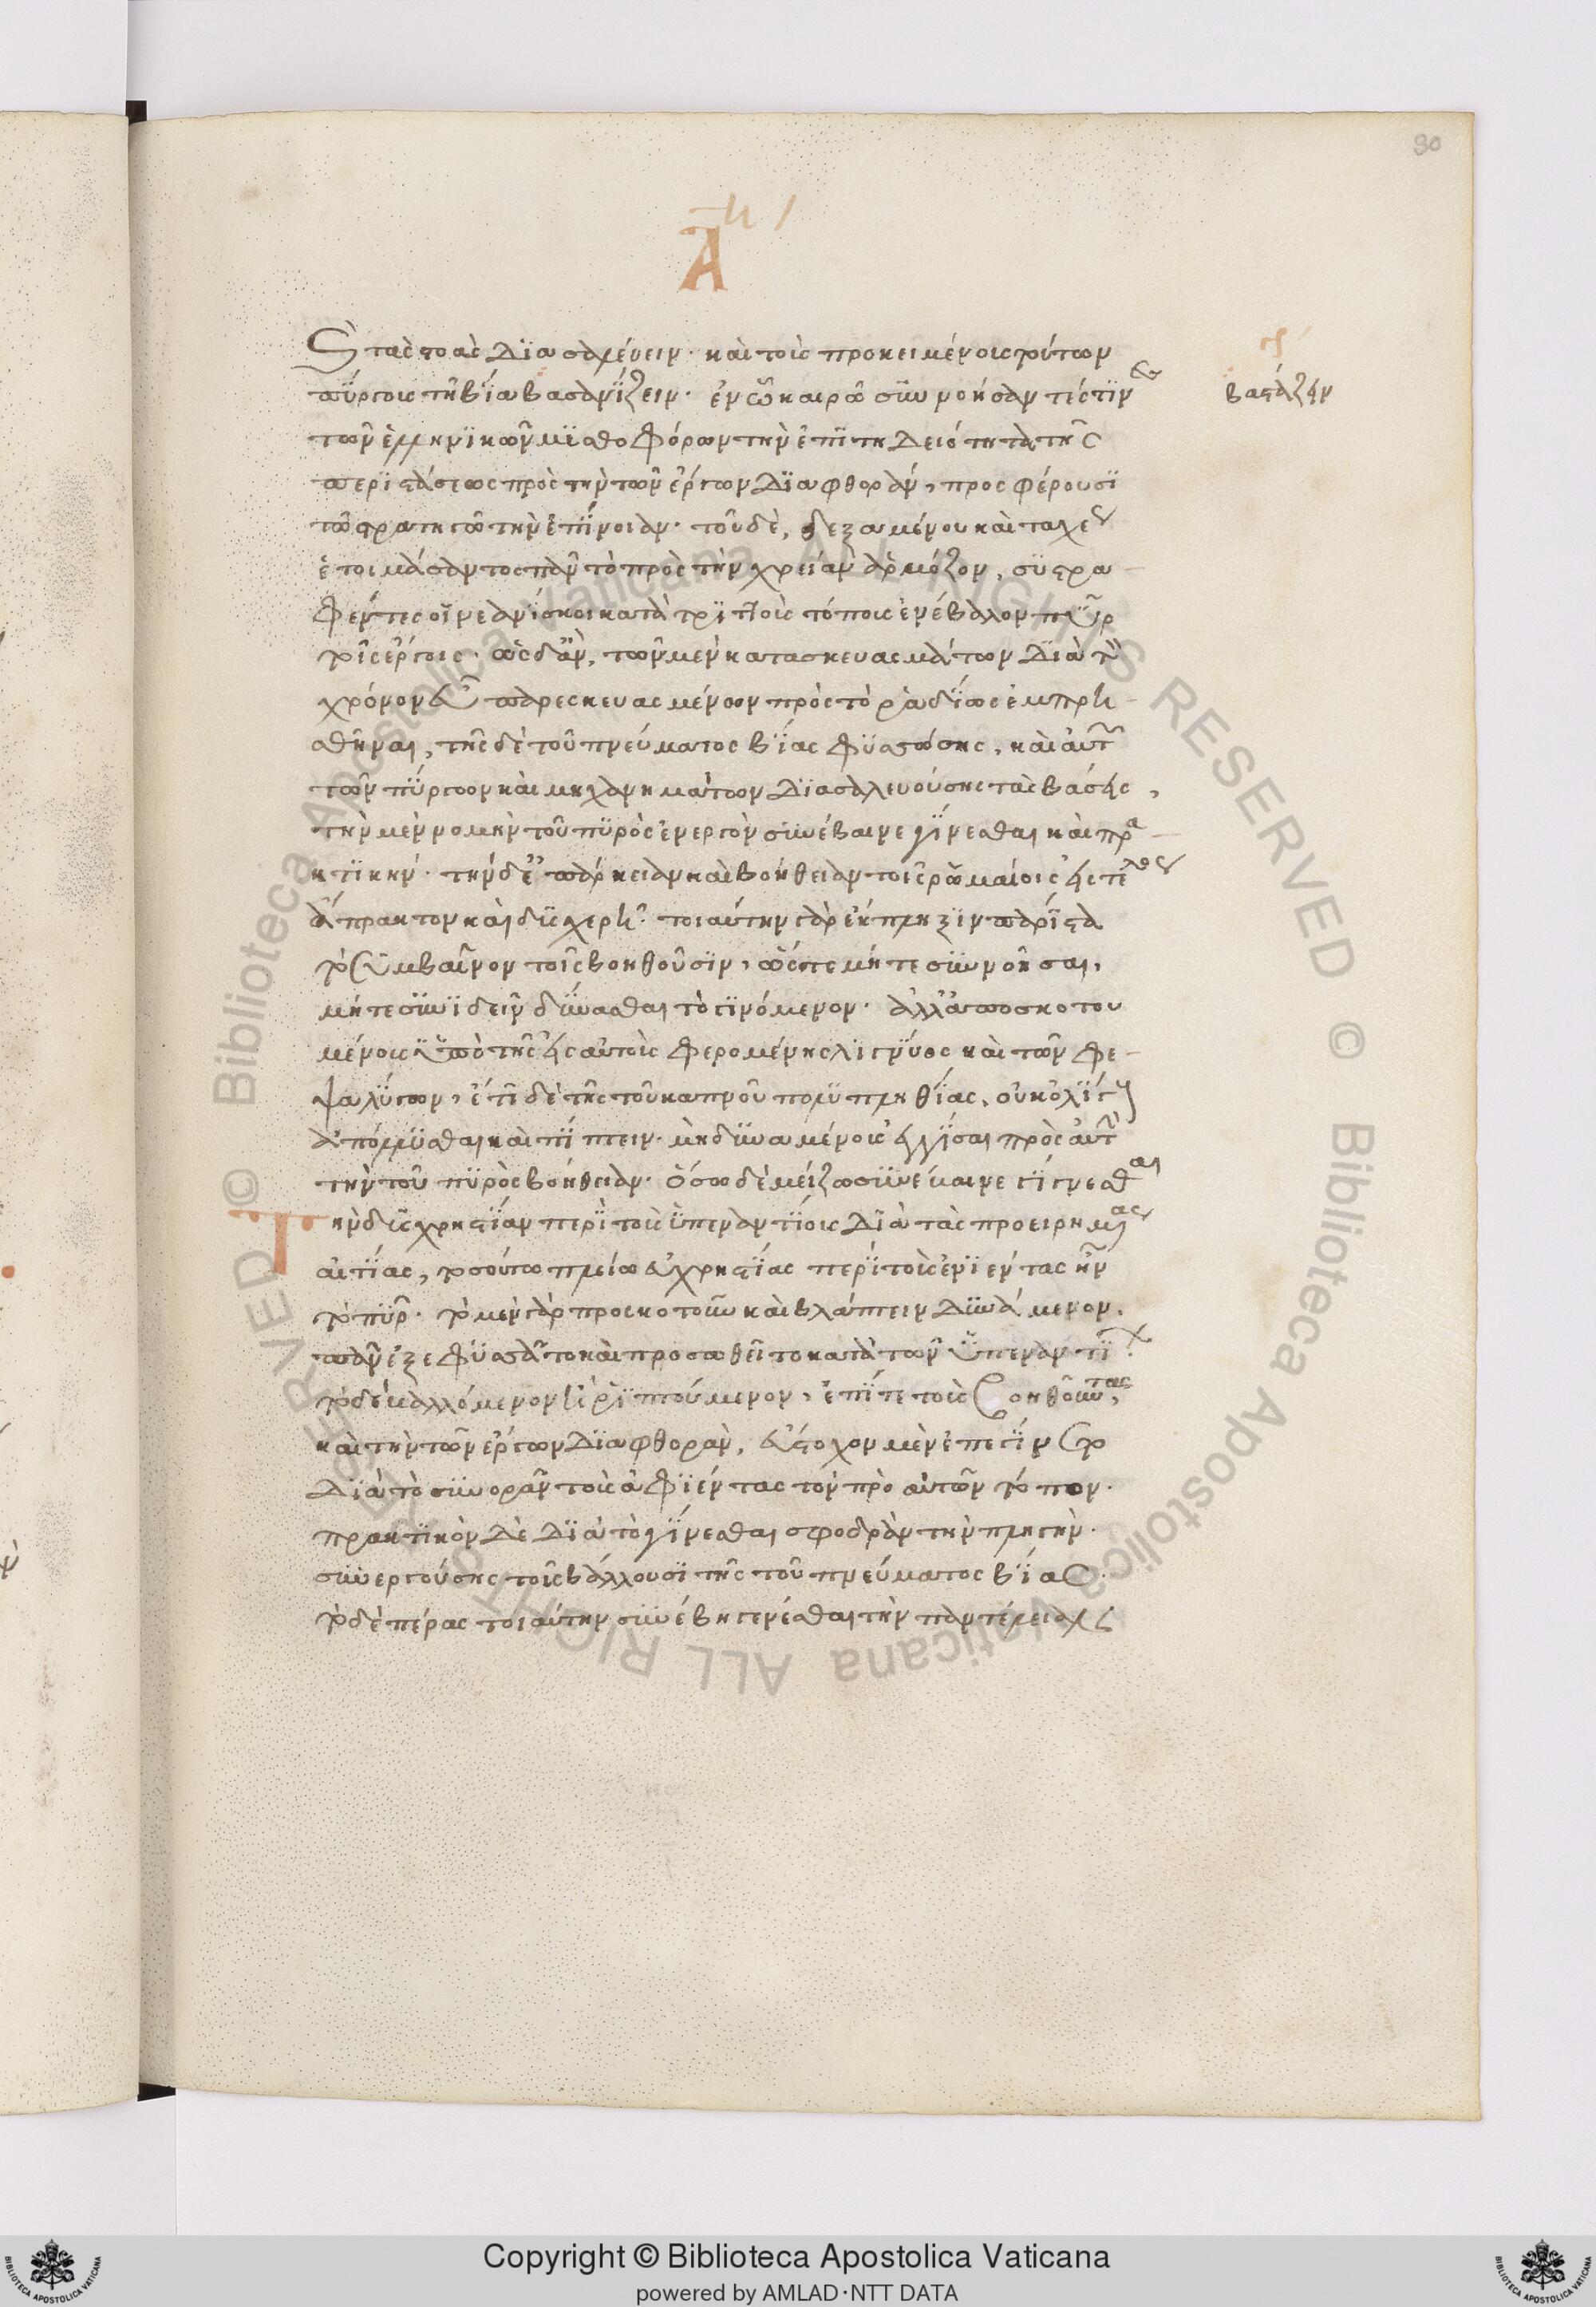 Α
στὰς στοὰς διασαλεύειν· καὶ τοὺς προκειμένους τούτων
πύργους τῆ βία βασανίζειν· ἐν ὧ καιρῶ συννοήσαντές τινες
τῶν ἑλληνικῶν μισθοφόρων τὴν ἐπιτηδειότητα τῆς
περιστάσεως πρὸς τὴν τῶν ἔργων διαφθορὰν, προσφέρουσι
τῶ στρατηγῶ τὴν ἐπίνοιαν· τοῦ δὲ, δεξαμένου καὶ ταχέως
ἑτοιμάσαντος πᾶν τὸ πρὸς τὴν χρείαν ἁρμόζον, συστρα-
φέντες οἱ νεανίσκοι κατὰ τριττοὺς τόπους ἐνέβαλον πῦρ
τοῖς ἔργοις· ὡς δ' ἂν, τῶν μὲν κατασκευασμάτων διὰ τὸν
χρόνον εὖ παρεσκευασμένων πρὸς τὸ ῥαδίως ἐμπρη-
σθῆναι, τῆς δὲ τοῦ πνεύματος βίας φυσώσης, καὶ αὐτῶν
τῶν πύργων καὶ μηχανημάτων διασαλευούσης τὰς βάσεις,
τὴν μὲν νομὴν τοῦ πυρὸς ἐνεργὸν συνέβαινε γίνεσθαι καὶ πρα-
κτικήν· τὴν δ' ἐπάρκειαν καὶ βοήθειαν τοῖς ῥωμαίοις εἰς τέλος
ἄπρακτον καὶ δυσχερῆ· τοιαύτην γὰρ ἔκπληξιν παρίστα
τὸ συμβαῖνον τοῖς βοηθοῦσιν, ὥστε μήτε συννοῆσαι,
μήτε συνιδεῖν δύνασθαι τὸ γινόμενον· ἀλλ' ἀποσκοτου
μένους ὑπὸ τῆς εἰς αὐτοὺς φερομένης λιγνύος καὶ τῶν φε-
ψαλύγων, ἔτι δὲ τῆς τοῦ καπνοῦ πολυπληθίας, οὐκ ὀλίγους
ἀπόλλυσθαι καὶ πίπτειν· μὴ δυναμένους ἐγγίσαι πρὸς αὐτὴν
τὴν τοῦ πυρὸς βοήθειαν· ὅσω δὲ μείζω συνέβαινε γίγνεσθαι
Τὴν δυσχρηστίαν περὶ τοὺς ὑπεναντίους διὰ τὰς προειρημένας
αἰτίας, τοσούτω πλείω εὐχρηστίας περὶ τοὺς ἐνιέντας ἦν
τὸ πῦρ· τὸ μὲν γὰρ προσκοτοῦν καὶ βλάπτειν δυνάμενον,
πᾶν ἐξεφυσᾶτο καὶ προσωθεῖτο κατὰ τῶν ὑπεναντίων
τὸ δὲ βαλλόμενον ἢ ῥιπτούμενον, ἐπί τε τοὺς βοηθοῦντας,
καὶ τὴν τῶν ἔργων διαφθορὰν, εὔστοχον μὲν ἐπεγίνετο
διὰ τὸ συνορᾶν τοὺς ἀφιέντας τὸν πρὸ αὐτῶν τόπον·
πρακτικὸν δὲ διὰ τὸ γίνεσθαι σφοδρὰν τὴν πληγὴν·
συνεργούσης τοῖς βάλλουσι τῆς τοῦ πνεύματος βίας·
τὸ δὲ πέρας τοιαύτην συνέβη γενέσθαι τὴν παντέλειαν
βαστάζειν
90
Copyright © Biblioteca Apostolica Vaticana
powered by AMLAD·NTT DATA